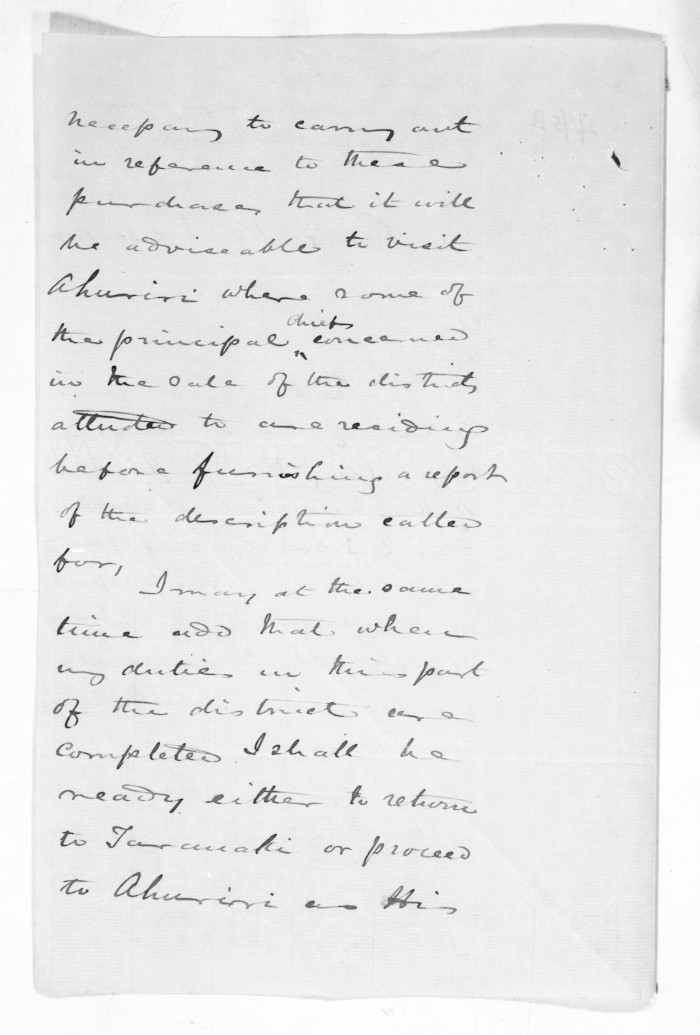 necessary to carry out
in reference to these
purchases, that it will
be adviseable to visit
Ahuriri where some of
chiefs
the principal concerned
in the sale of the districts
alluded to are residing
before furnishing a report
of the description called
for,
I may at the same
time add that when
my duties in this part
of the district are
completed I shall be
ready either to return
to Taranaki or proceed
to Ahuriri as His